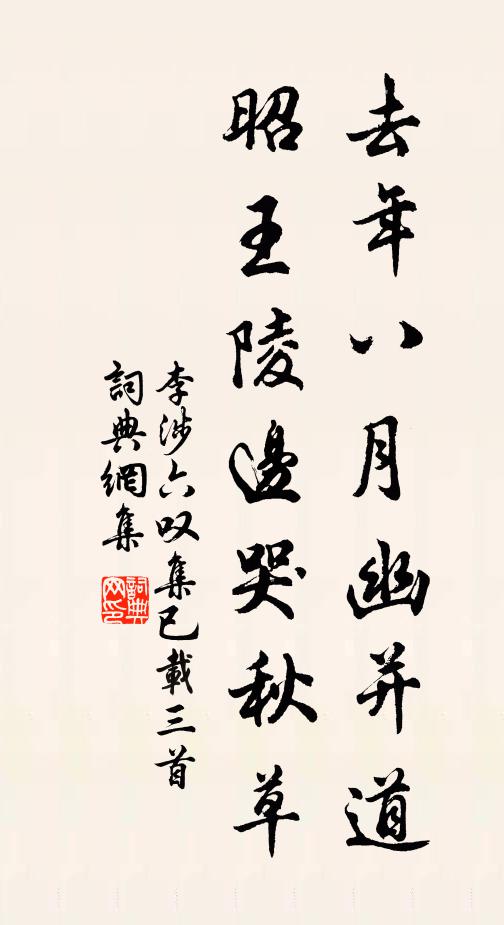 去年八月幽并道
昭王陵邊哭秋草
李涉六叹集已載三首
詞典網集
詞典網印